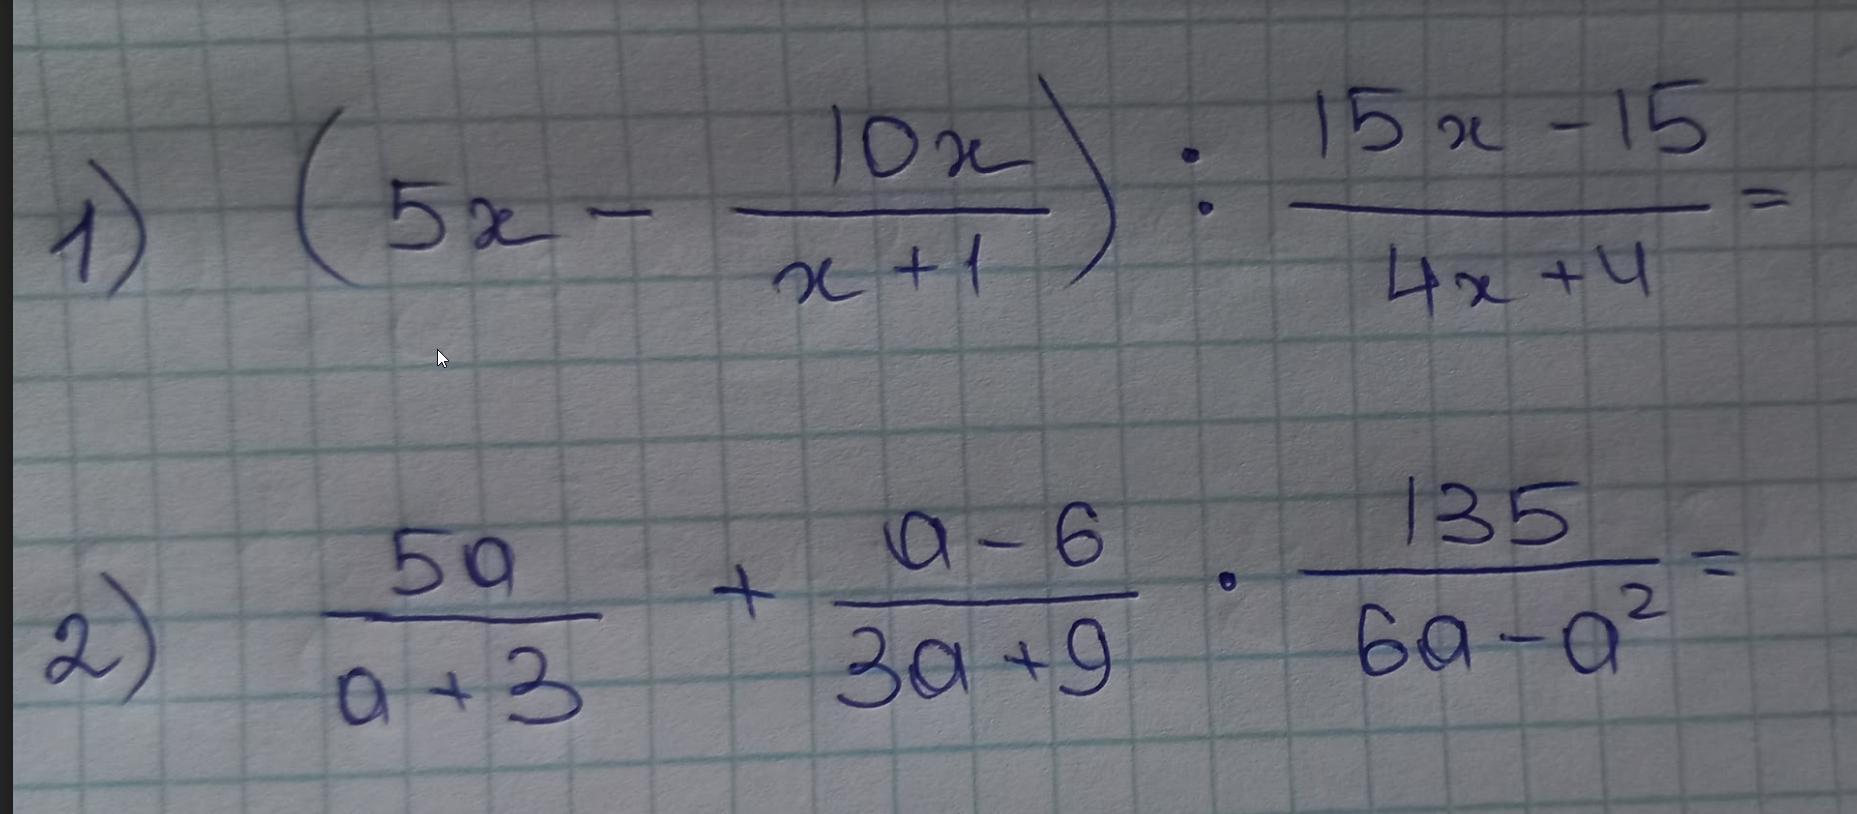 1) (5x - 10x/(x+1)) : (15x-15)/(4x+4) =
2) 5a/(a+3) + (a-6)/(3a+9) · 135/(6a-a²) =